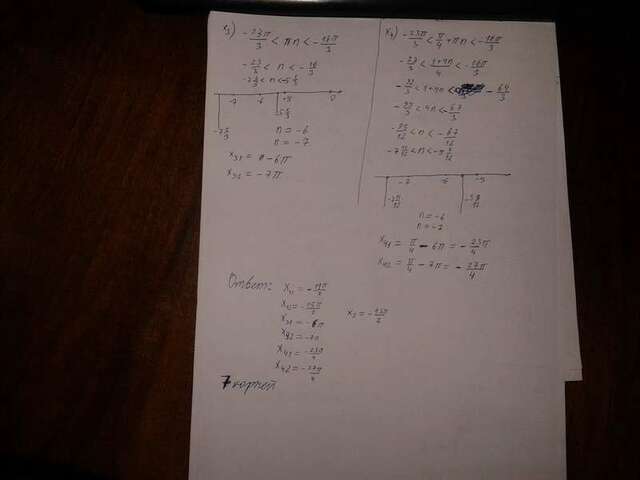 x₃) -23π/3 < πn < -16π/3
-23/3 < n < -16/3
-7 2/3 < n < -5 1/3
-7
n = -6
n = -7
x₃₁ = -6π
x₃₂ = -7π
x₄) -23π/3 < π/4 + πn < -16π/3
-23/3 < 1+4n/4 < -16π/3
-92/3 < 1+4n < -64/3
-95/3 < 4n < -67/3
-95/12 < n < -67/12
-7 11/12 < n < -5 7/12
-7
n = -6
n = -7
x₄₁ = π/4 - 6π = -23π/4
x₄₂ = π/4 - 7π = -27π/4
Ответ:
x₃₁ = -6π
x₃₂ = -7π
x₄₁ = -23π/4
x₄₂ = -27π/4
7 корней